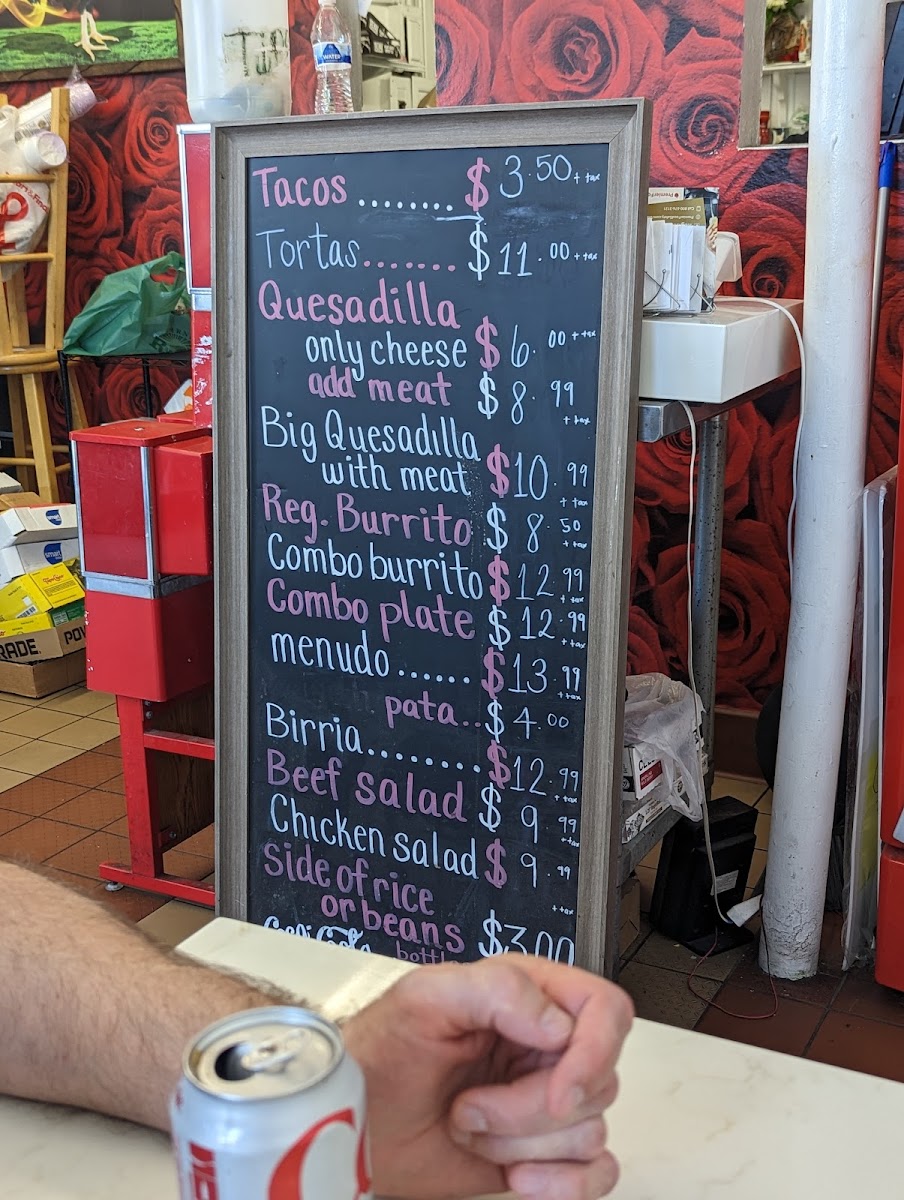 WATER
Tacos ........ $ 3.50 + tax
Tortas....... $ 11.00 + tax
Quesadilla
only cheese $ 6.00 + tax
add meat $ 8.99
+ tax
Big Quesadilla
with meat $ 10.99
+ tax
Reg. Burrito $ 8.50
+ tax
Combo burrito $ 12.99
+ tax
Combo plate $ 12.99
+ tax
menudo...... $ 13.99
+ tax
pata.. $ 4.00
Birria........ $ 12.99
+ tax
Beef salad $ 9.99
+ tax
Chicken salad $ 9.99
+ tax
Side of rice
or beans $3.00
Coca-Cola bottle